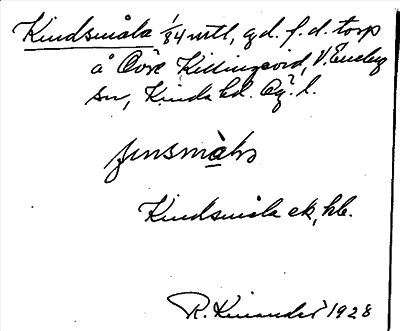 Kindsmåla 1/84 mtl, g.d. f.d. torp
å Övre Killingevid, V. Eneby
sn, Kinda hd. Ög. l.
Kindsmåla ek. kb.
R. Kinander 1928